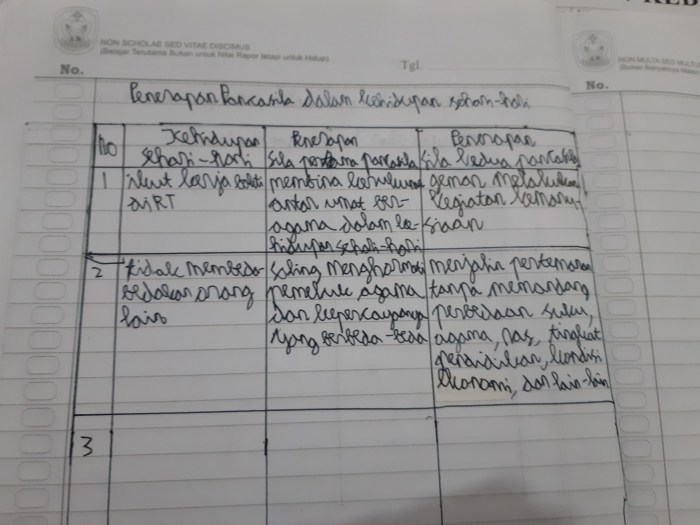 NON SCHOLAE SED VITAE DISCIMUS
(Belajar Terutama Bukan untuk Nilai Rapor tetapi untuk Hidup)
No.
Tgl.
NON MULTA SED MULTUM
No.
Penerapan Pancasila dalam kehidupan sehari-hari
No
Kehidupan
sehari-hari
Penerapan
sila pertama pancasila
Penerapan
sila kedua pancasila
1
ikut kerja bakti
di RT
membina kerukunan
antar umat ber-
agama dalam ke-
hidupan sehari-hari
gemar melakukan
kegiatan kemanu-
siaan
2
tidak membeda-
bedakan orang
lain
saling menghormati
pemeluk agama
dan kepercayaannya
yang berbeda-beda
menjalin pertemanan
tanpa memandang
perbedaan suku,
agama, ras, tingkat
pendidikan, kondisi
ekonomi, dan lain-lain
3